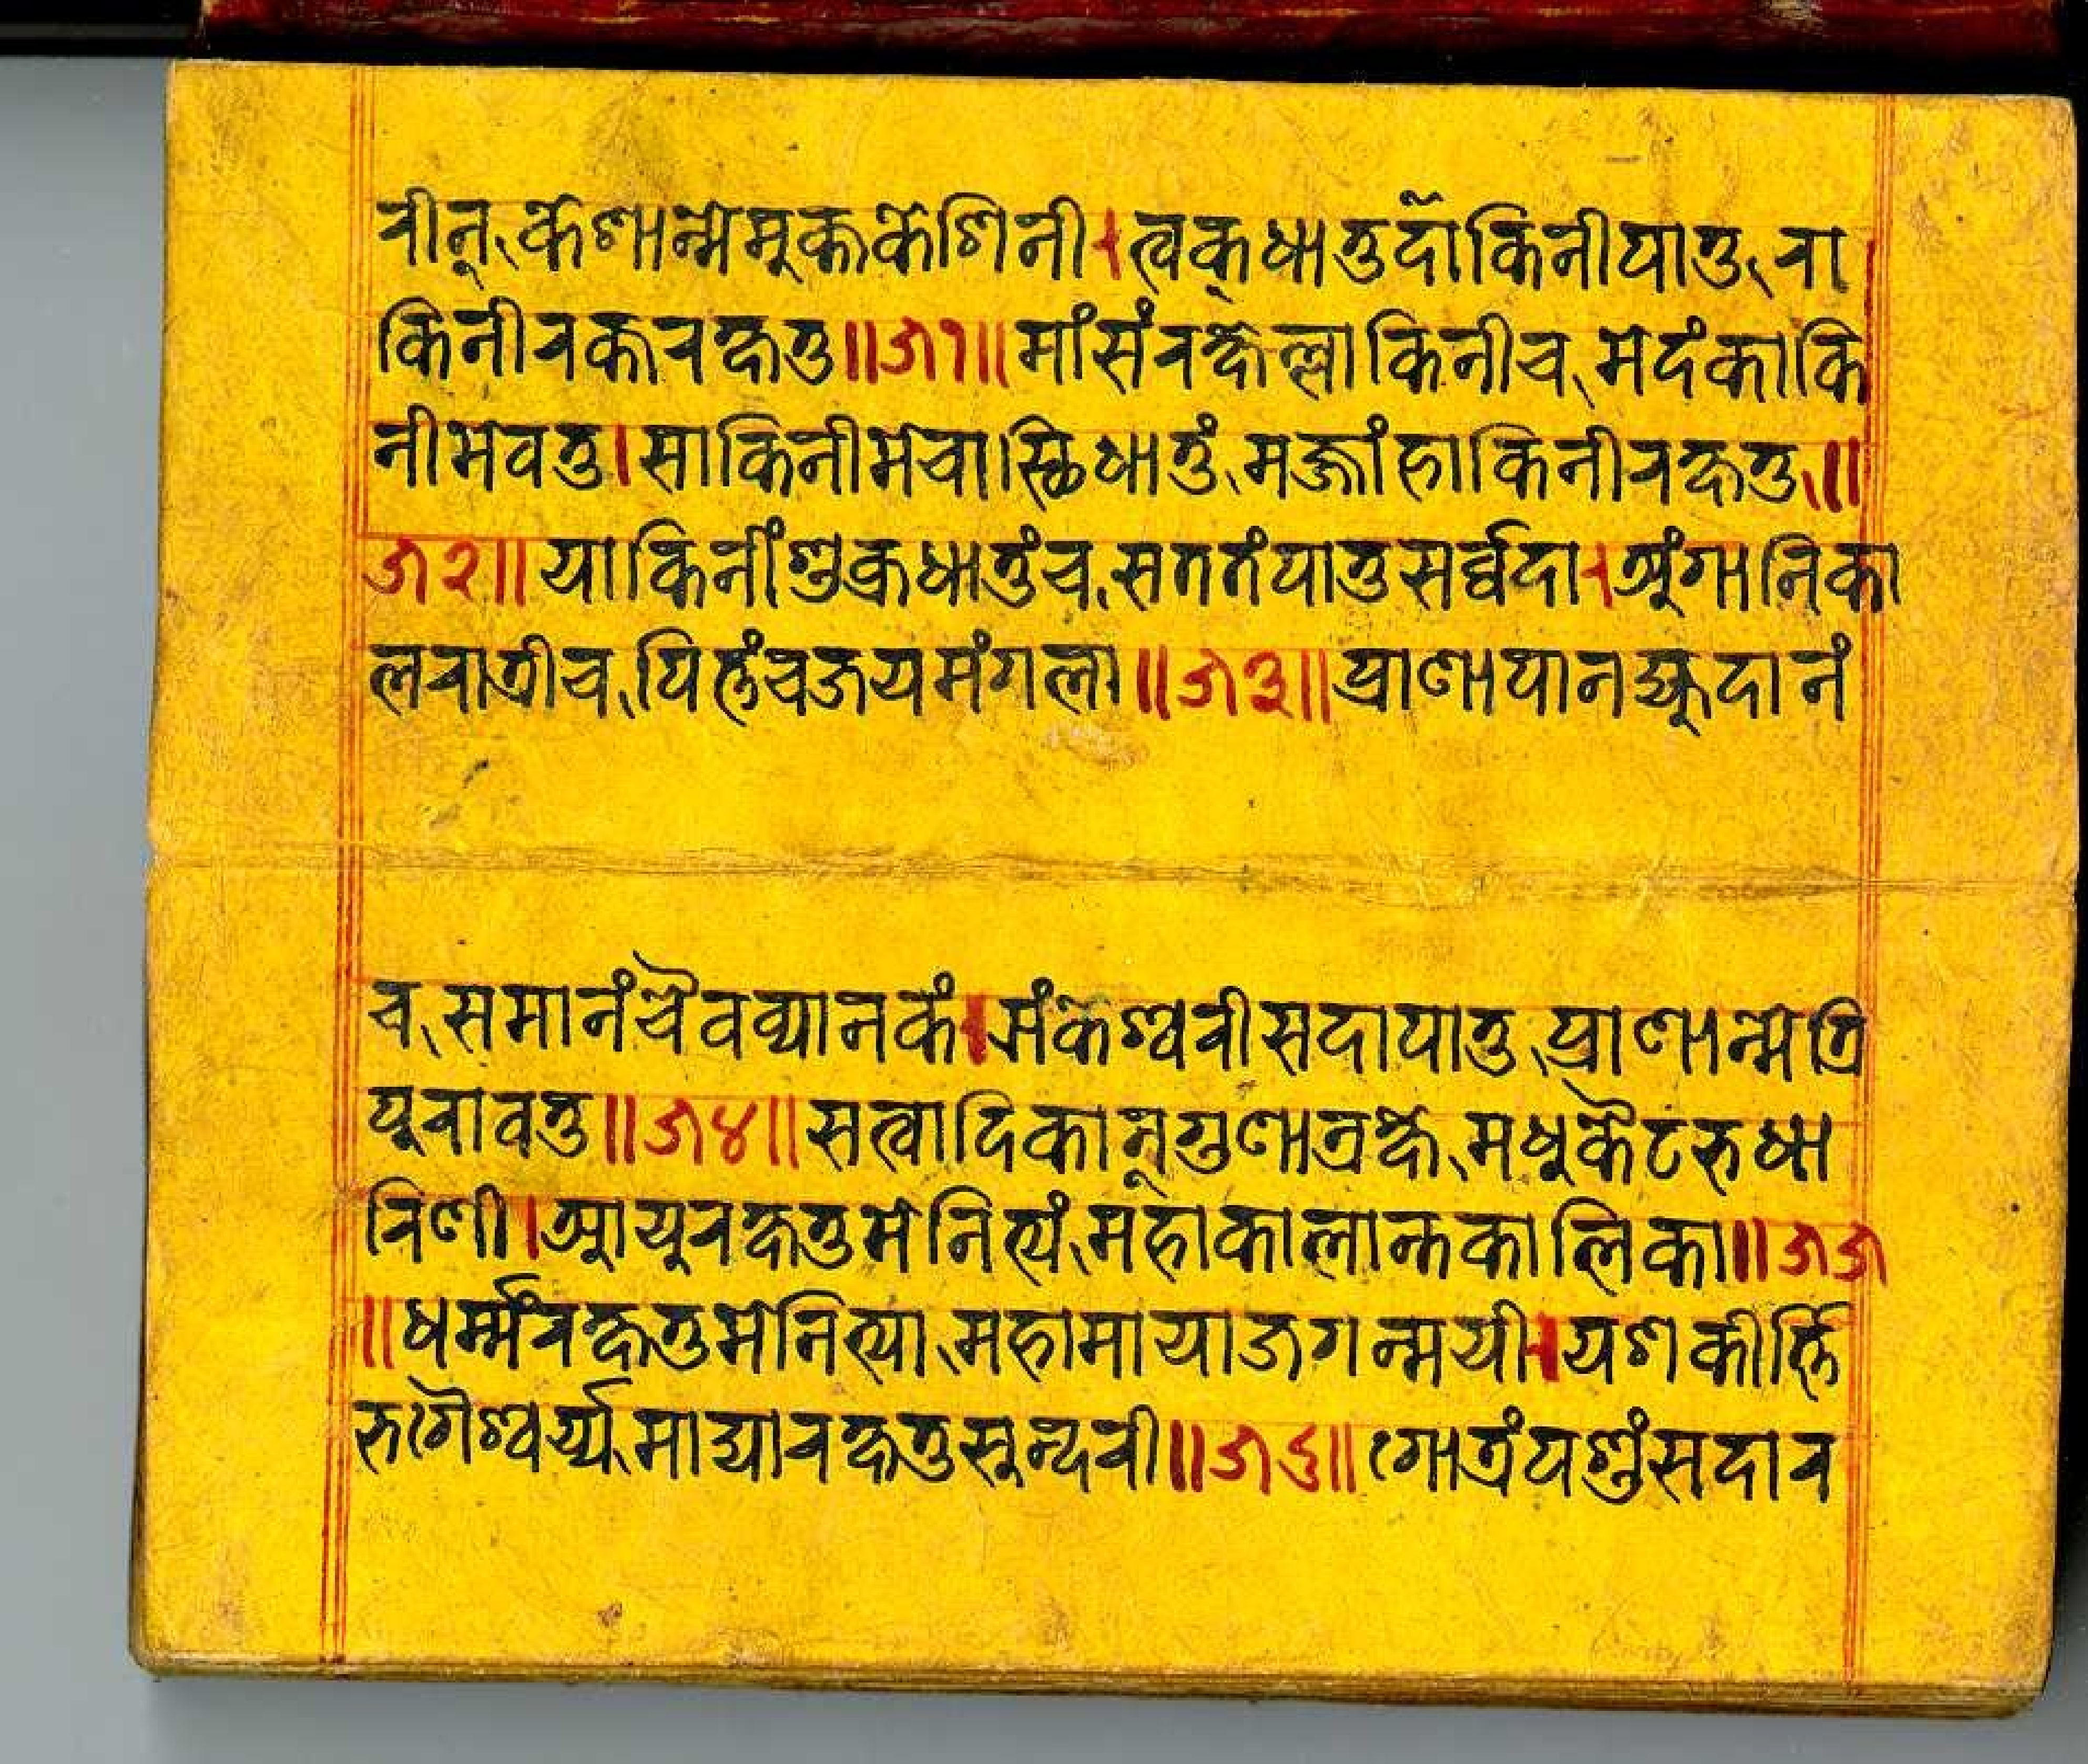 रीन्, केशान्मेमूक्तकेशिनी । त्वक्धातुर्दाँकिनीपातु, रा
किनीरक्तरक्षतु ॥५१॥ मांसंरक्षेल्लाकिनीच, मेदंकाकि
नीमेवतु । साकिनीमेचास्थिधातुं, मज्जांहाकिनीरक्षतु, ॥
५२॥ याकिनींशुक्रधातुंच, सततंपातुसर्व्वदा । अंगानिका
लरात्रीच, पित्तंचजयमंगला ॥५३॥ प्राणापानव्यूदानं
च, समानंचैवव्यानकं । अंकेश्वरीसदापातु, प्राणान्मेत्रि
पूरावतु ॥५४॥ सत्वादिकान्गुणान्रक्षे, मधूकैटरुधा
रिणी । आयूरक्षतुमेनित्यं, महाकालान्तकालिका ॥५५
॥ धर्म्मंरक्षतुमेनित्या, महामायाजगन्मयी । यशकीर्त्ति
रुगैश्वर्य्य, माद्यारक्षतुसुन्दरी ॥५६॥ गोत्रंपशुंसदार